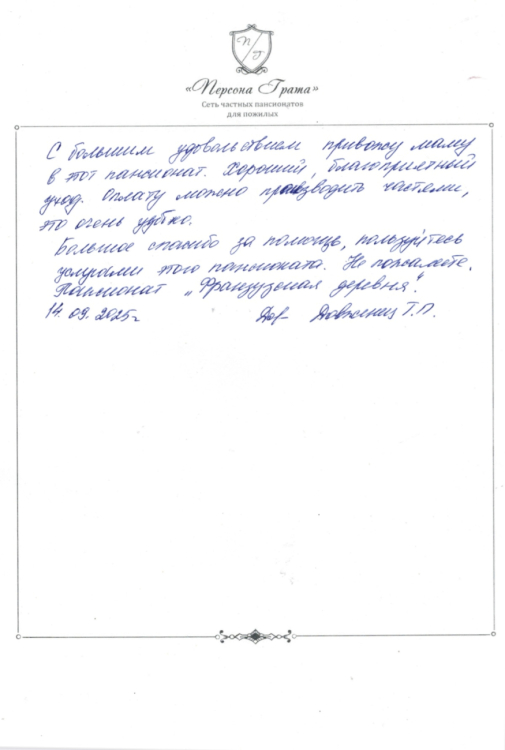 «Персона Грата»
Сеть частных пансионатов
для пожилых
С большим удовольствием привожу маму
в этот пансионат. Хороший, благоприятный
уход. Оплату можно производить частями,
это очень удобно.
Большое спасибо за помощь, пользуйтесь
услугами этого пансионата. Не пожалеете.
Пансионат „Французская деревня".
14.09.2025г
Т.П.